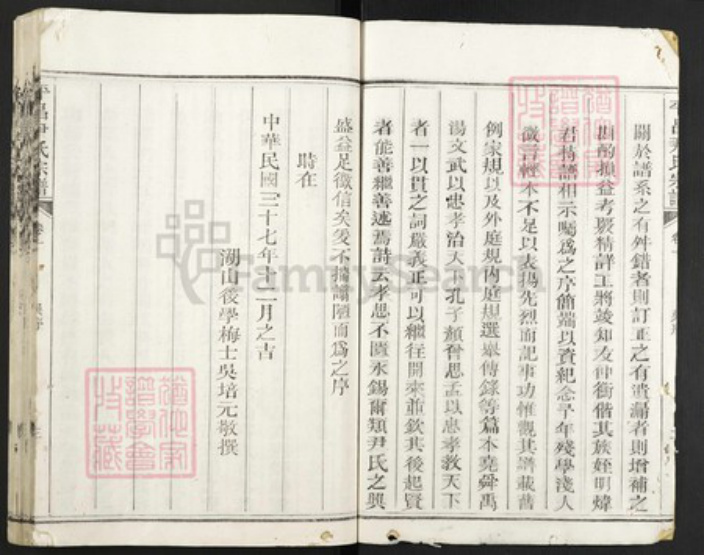 關於譜系之有舛錯者則訂正之有遺漏者則增補之
斟酌損益考覈精詳工將竣知友仲衡偕其族姪明煒
君持譜相示囑爲之序簡端以資紀念予年殘學淺人
微言輕本不足以表揚先烈而記事功惟觀其譜載舊
例家規以及外庭規內庭規選舉傳錄等篇本堯舜禹
湯文武以忠孝治天下孔子顏曾思孟以忠孝敎天下
者一以貫之詞嚴義正可以繼往開來並欽其後起賢
者能善繼善述焉詩云孝思不匱永錫爾類尹氏之興
盛益足徵信矣爰不揣譾陋而爲之序
時在
中華民國三十七年十二月之吉
湖山後學梅士吳培元敬撰
平昌尹氏宗譜
卷一
平昌尹氏宗譜
卷一
猶他家譜學會特藏
猶他家譜學會特藏
FamilySearch